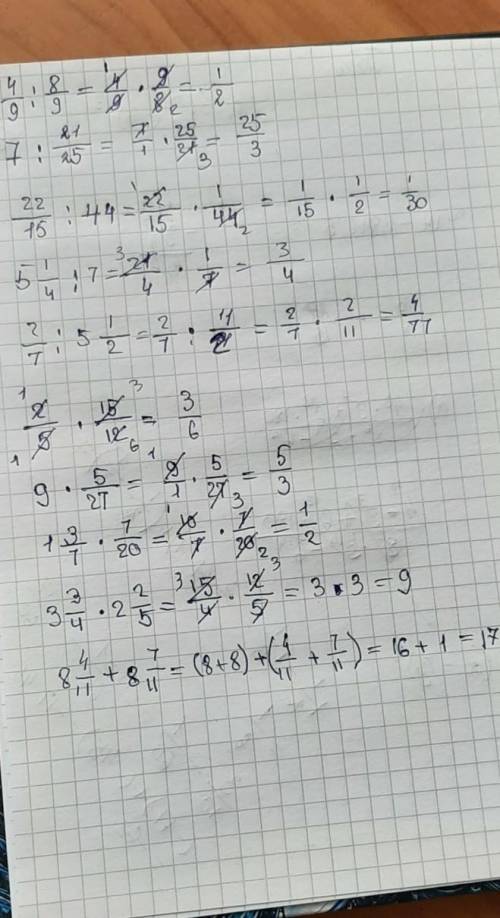 4/9 : 8/9 = 4/9 · 9/8 = 1/2
7 : 21/25 = 7/1 · 25/21 = 25/3
22/15 : 44 = 22/15 · 1/44 = 1/15 · 1/2 = 1/30
5 1/4 : 7 = 21/4 · 1/7 = 3/4
2/7 : 5 1/2 = 2/7 : 11/2 = 2/7 · 2/11 = 4/77
2/5 · 15/12 = 3/6
9 · 5/27 = 9/1 · 5/27 = 5/3
1 3/7 · 7/20 = 10/7 · 7/20 = 1/2
3 3/4 · 2 2/5 = 15/4 · 12/5 = 3 · 3 = 9
8 4/11 + 8 7/11 = (8+8) + (4/11 + 7/11) = 16 + 1 = 17